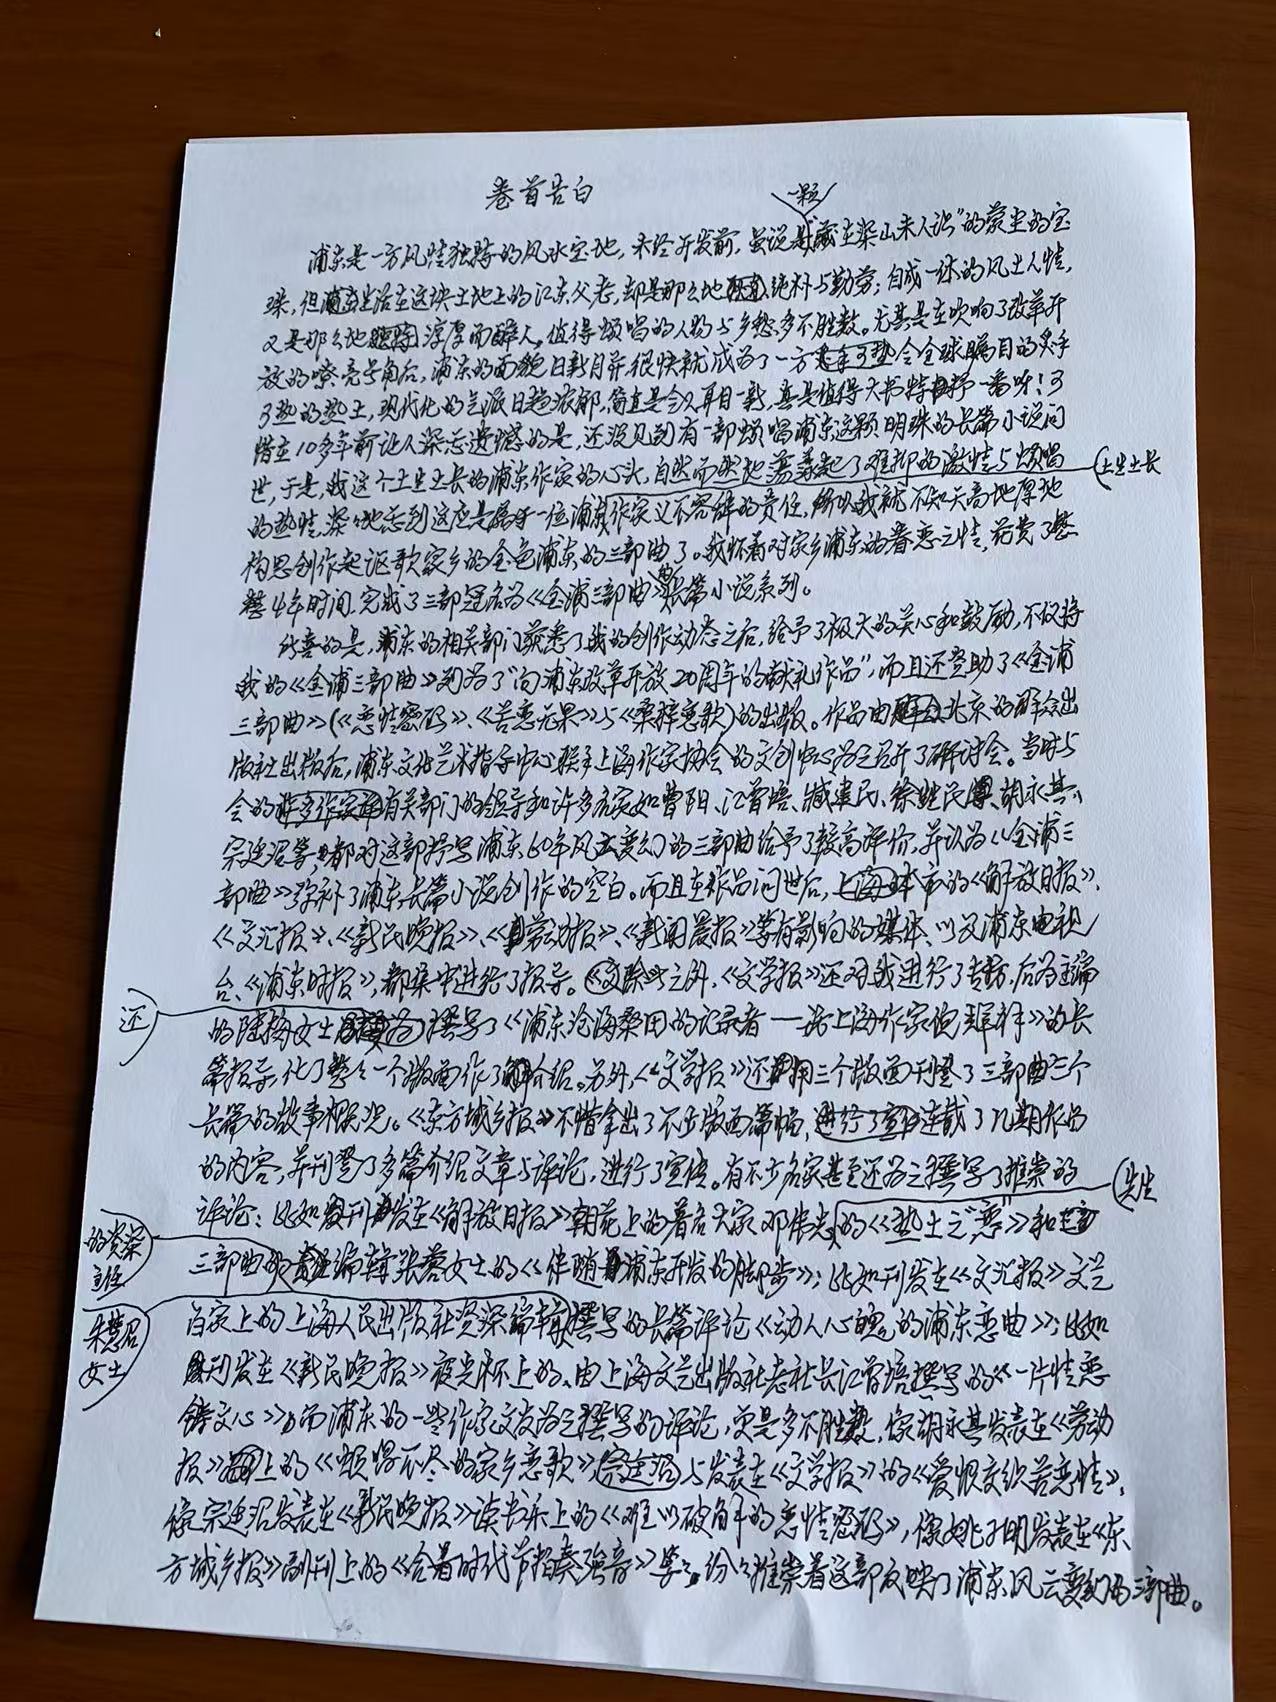 卷首告白
一颗
浦东是一方风情独特的风水宝地，未经开发前，虽说是“藏在深山未人识”的蒙尘的宝
珠，但生活在这块土地上的江东父老，却是那么地纯朴与勤劳；自成一体的风土人情，
又是那么地淳厚而醉人。值得颂唱的人物与乡愁多不胜数。尤其是在吹响了改革开
放的嘹亮号角后，浦东的面貌日新月异，很快就成为了一方令全球瞩目的炙手
可热的热土，现代化的气派日趋浓郁，简直是令人耳目一新，真是值得大书特书一番呀！可
惜在10多年前让人深感遗憾的是，还没见到有一部颂唱浦东这颗明珠的长篇小说问
世，于是，我这个土生土长的浦东作家的心头，自然而然地荡起了难抑的激情与颂唱
土生土长
的热情，深深地感到这应是属于一位浦东作家义不容辞的责任，所以我就不知天高地厚地
构思创作起讴歌家乡的金色浦东的三部曲了。我怀着对家乡浦东的眷恋之情，花费了整
整4年时间，完成了三部冠名为《金浦三部曲》的长篇小说系列。
欣喜的是，浦东的相关部门获悉了我的创作动态之后，给予了极大的关心和鼓励，不仅将
我的《金浦三部曲》列为了“向浦东改革开放20周年的献礼作品”，而且还资助了《金浦
三部曲》（《恋情密码》、《苦恋无果》与《桑梓恋歌》）的出版。作品由北京的群众出
版社出版后，浦东文化艺术指导中心联手上海作家协会的文创中心为之召开了研讨会。当时与
会的有关部门的领导和许多名家如曹阳、江曾培、臧建民、徐民、胡永其、
宗廷沼等，都对这部抒写浦东60年风云变幻的三部曲给予了较高评价，并认为《金浦三
部曲》弥补了浦东长篇小说创作的空白。而且在作品问世后，本市的《解放日报》、
《文汇报》、《新民晚报》、《劳动报》、《新闻晨报》等有影响的媒体、以及浦东电视
台、《浦东时报》，都集中进行了报导。除此之外，《文学报》还对我进行了专访，后为主编
还
的陆梅女士撰写了《浦东沧海桑田的记录者——访上海作家倪辉祥》的长
篇报导，化了整整一个版面作了介绍。另外，《文学报》还用三个版面刊登了三部曲三个
长篇的故事概况。《东方城乡报》不惜拿出了不少版面篇幅，连载了几期作品
的内容，并刊登了多篇介绍文章与评论，进行了宣传。有不少名家甚至还为之撰写了推崇的
先生
评论：比如刊发在《解放日报》朝花上的著名大家邓伟志的《热土之“恋”》和
的资深
主任
三部曲的编辑张蓉女士的《伴随浦东开发的脚步》；比如刊发在《文汇报》文艺
朱慧君
女士
百家上的上海人民出版社资深编辑撰写的长篇评论《动人心魄的浦东恋曲》；比如
刊发在《新民晚报》夜光杯上的、由上海文艺出版社老社长江曾培撰写的《一片情恋
铸文心》；而浦东的一些作家文友为之撰写的评论，更是多不胜数，像胡永其发表在《劳动
报》上的《唱不尽的家乡恋歌》与发表在《文学报》的《爱恨交织苦恋情》，
像宗廷沼发表在《新民晚报》读书乐上的《难以破解的恋情密码》，像姚子明发表在《东
方城乡报》副刊上的《合着时代节拍奏强音》等，纷纷推崇着这部反映了浦东风云变幻的三部曲。